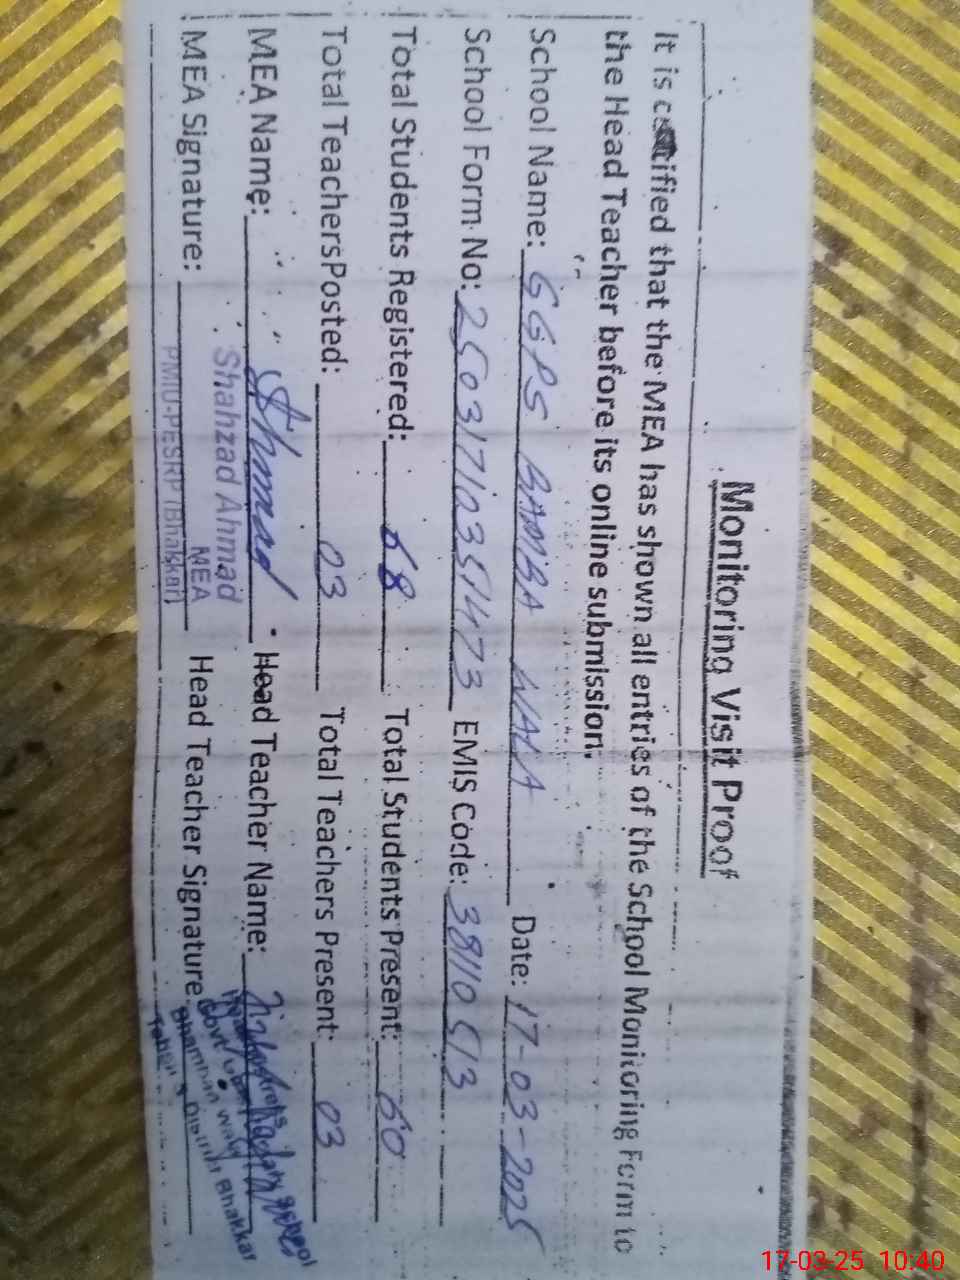 Monitoring Visit Proof
It is certified that the MEA has shown all entries of the School Monitoring Form to
the Head Teacher before its online submission.
School Name: GGPS BAMBA WALA Date: 17-03-2025
School Form No: 25031710351473 EMIS Code: 38110513
Total Students Registered: 68 Total Students Present: 60
Total Teachers Posted: 03 Total Teachers Present: 03
MEA Name: Ahmad Head Teacher Name:
Shahzad Ahmad
MEA
MEA Signature: PMIU-PESRP (Bhakkar) Head Teacher Signature:
Govt
Bhamban wala
Tehsil & District Bhakkar
17-03-25 10:40